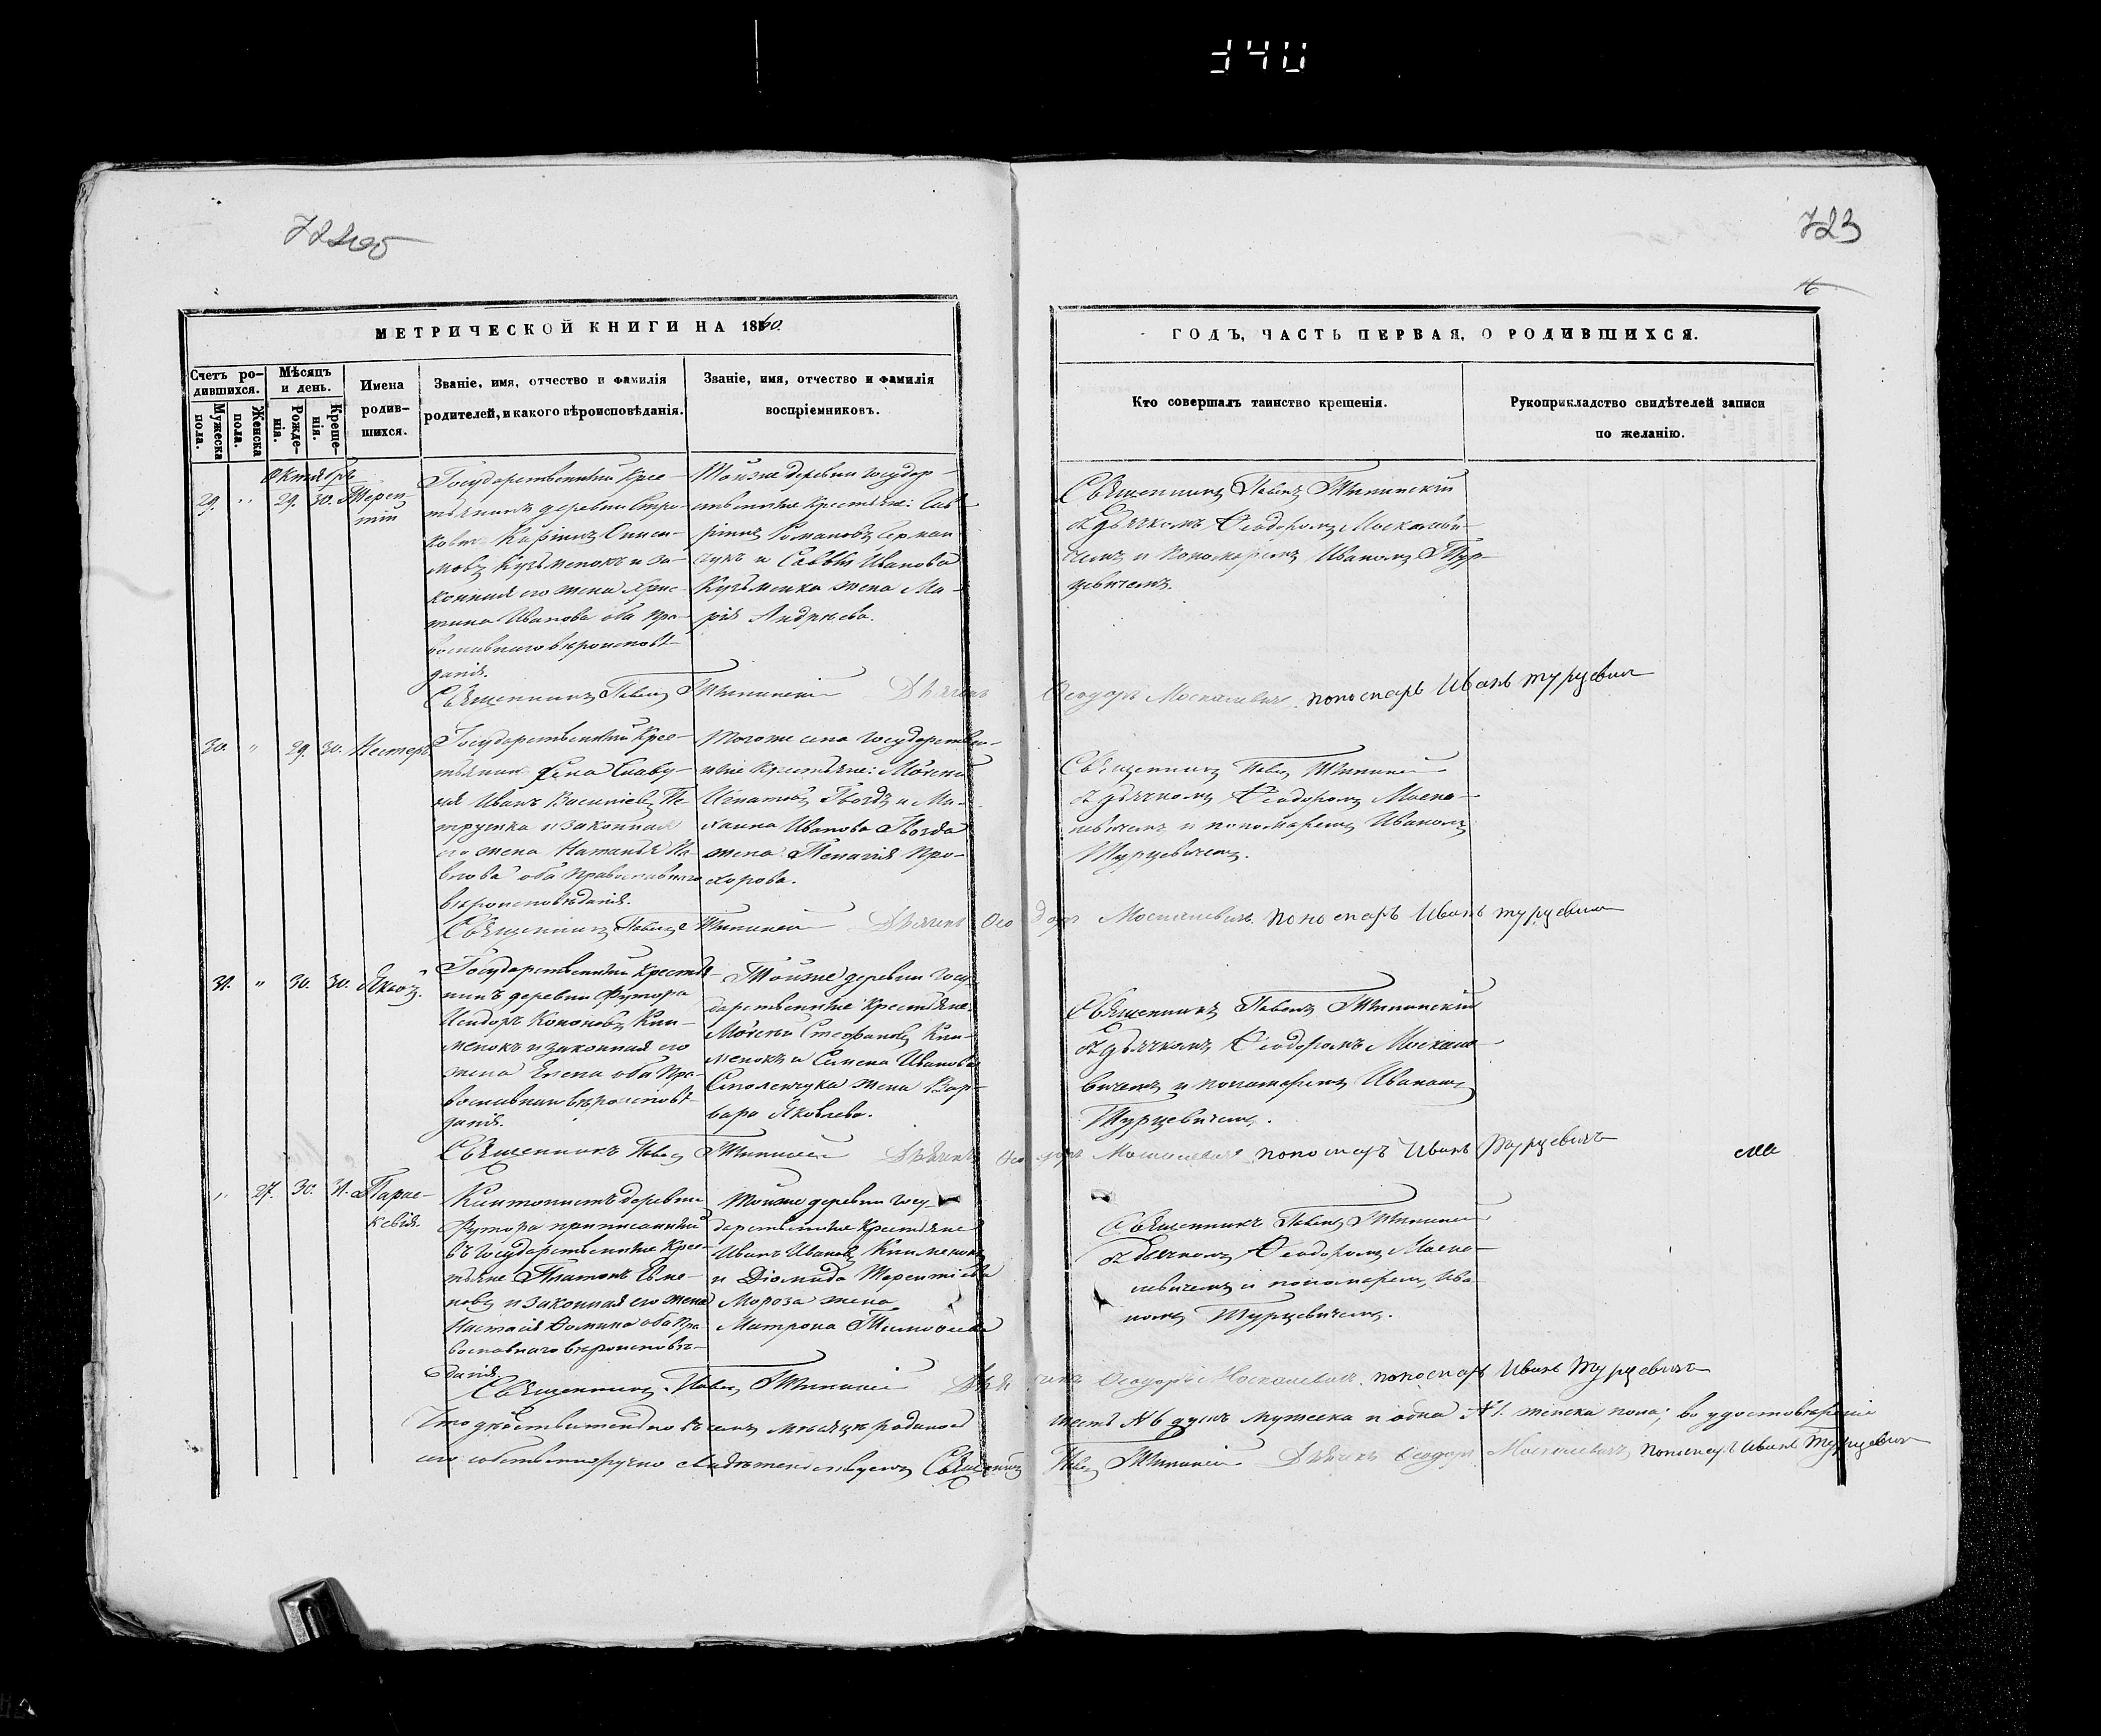 340
722 об
723
16
МЕТРИЧЕСКОЙ КНИГИ НА 1860.
Счетъ ро-
дившихся.
Мѣсяцъ
и день.
Мужеска
пола.
Женска
пола.
Рожде-
нія.
Креще-
нія.
Имена
родив-
шихся.
Званіе, имя, отчество и фамилія
родителей, и какого вѣроисповѣданія.
Званіе, имя, отчество и фамилія
воспріемниковъ.
ГОДЪ, ЧАСТЬ ПЕРВАЯ, О РОДИВШИХСЯ.
Кто совершалъ таинство крещенія.
Рукоприкладство свидѣтелей записи
по желанію.
Октябрь
29. " 29. 30. Терен-
тій
Государственный Крес-
тьянинъ деревни
Кузьменокъ и за-
конная его жена Хрис-
тина Ивановa оба пра-
вославнаго вѣроисповѣ-
данія.
Тойже деревни государ-
ственные Крестьяне:
Романовъ
и Саввы Иванова
Кузьменка жена Ма-
рія Андреева.
Священникъ Павелъ
съ дьячкомъ Ѳеодоромъ Москалеви-
чемъ и пономаремъ Иваномъ Тур-
цевичемъ.
Священникъ Павелъ Дьячекъ Ѳеодоръ Москалевичъ пономарь Иванъ Турцевичъ
30. " 29. 30. Нестеръ
Государственный Крес-
тьянинъ села
Иванъ Васильевъ Пе-
трушка и законная
его жена Наталья Па-
влова оба Православнаго
вѣроисповѣданія.
Тогоже села государствен-
ные крестьяне: Моисей
Игнатовъ Гвоздъ и Ми-
хаила Иванова Гвозда
жена Пелагія Про-
хорова.
Священникъ Павелъ
съ дьячкомъ Ѳеодоромъ Моска-
левичемъ и пономаремъ Иваномъ
Турцевичемъ.
Священникъ Павелъ Дьячекъ Ѳеодоръ Москалевичъ пономарь Иванъ Турцевичъ
31. " 30. 30. Яковъ.
Государственный крестья-
нинъ деревни Футора
Исидоръ Кононовъ Кли-
менокъ и законная его
жена Елена оба Пра-
вославнаго вѣроисповѣ-
данія.
Тойже деревни госу-
дарственные Крестьяне:
Моисей Стефановъ Кли-
менокъ и Семена Иванова
Смоленчука жена Вар-
вара Яковлева.
Священникъ Павелъ
съ дьячкомъ Ѳеодоромъ Москале-
вичемъ и пономаремъ Иваномъ
Турцевичемъ.
Священникъ Павелъ Дьячекъ Ѳеодоръ Москалевичъ пономарь Иванъ Турцевичъ
" 27. 30. 31. Парас-
кевія.
деревни
Футора приписанный
въ Государственные Крес-
тьяне Платонъ
и законная его жена
Настасія Ѳомина оба Пра-
вославнаго вѣроисповѣ-
данія.
Тойже деревни госу-
дарственные Крестьяне
Иванъ Ивановъ Клименокъ
и Діомида Терентіева
Мороза жена
Матрона Тимоѳеева
Священникъ Павелъ
съ дьячкомъ Ѳеодоромъ Моска-
левичемъ и пономаремъ Ива-
номъ Турцевичемъ.
Священникъ Павелъ Дьячекъ Ѳеодоръ Москалевичъ пономарь Иванъ Турцевичъ
Что дѣйствительно въ семъ мѣсяцѣ родилось шесть № 6 душъ мужеска и одна № 1. женска пола; во удостовѣреніе
сего собственноручно свидѣтельствуемъ Священникъ Павелъ Дьячекъ Ѳеодоръ Москалевичъ пономарь Иванъ Турцевичъ